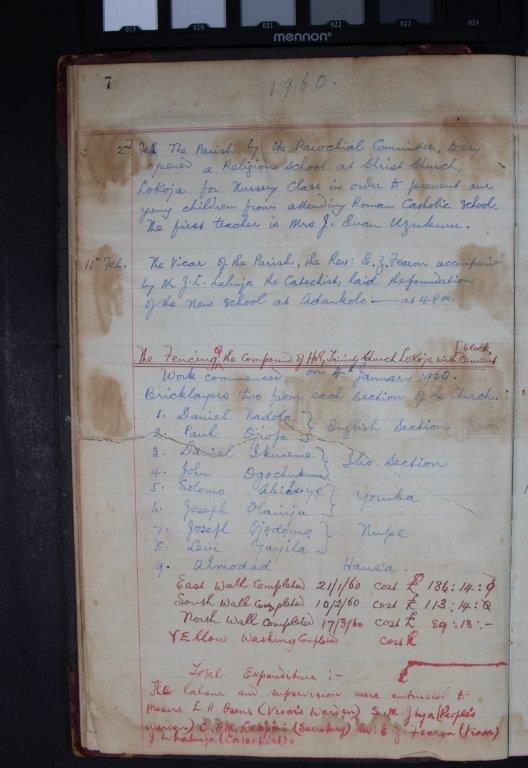 019 020 021 022 023 024
mennon®
7
1960.
2nd Feb. The Parish by its Parochial Committee, today
opened a Religious School at Christ Church,
Lokoja for Nursery Class in order to prevent our
young children from attending Roman Catholic School.
The first teacher is Mrs J. Evan
11th Feb. The Vicar of the Parish, the Rev: E. Z. Fearon accompanied
by Mr J. L. the Catechist, laid the foundation
of the New School at Adankolo — at 4 p.m.
The Fencing of the Compound of Holy Trinity Church Lokoja with Cement [block.
Work commenced on 4th January 1960.
Bricklayers two from each Section of the Church.
1. Daniel Kadola
2. Paul } English Section
3. Daniel
4. John } Ibo Section
5. Solomo
6. Joseph } Yoruba
7. Joseph
8. Levi Yayila } Nupe
9. Almodad Hausa.
East Wall Completed 21/1/60 cost £ 186:14:9
South Wall Completed 10/2/60 cost £ 113:14:0
North Wall Completed 17/3/60 cost £ 89:13:-
Yellow Washing Completed cost £
Total Expenditure :-
The Labour and supervision were entrusted to
Messrs L. A. (Vicar's Warden) S. M. Jiya (People's
Warden) C. (Secretary) Rev. E. Z. Fearon (Vicar)
J. L. (Catechist).